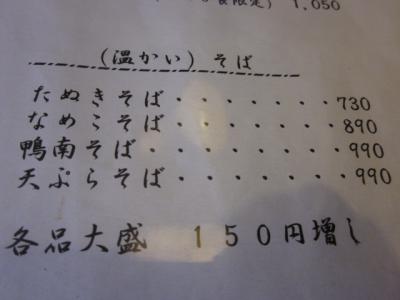 限定) 1,050
(温かい) そば
たぬきそば・・・・・・・・730
なめこそば・・・・・・・・890
鴨南そば・・・・・・・・・990
天ぷらそば・・・・・・・・990
各品大盛 150円増し